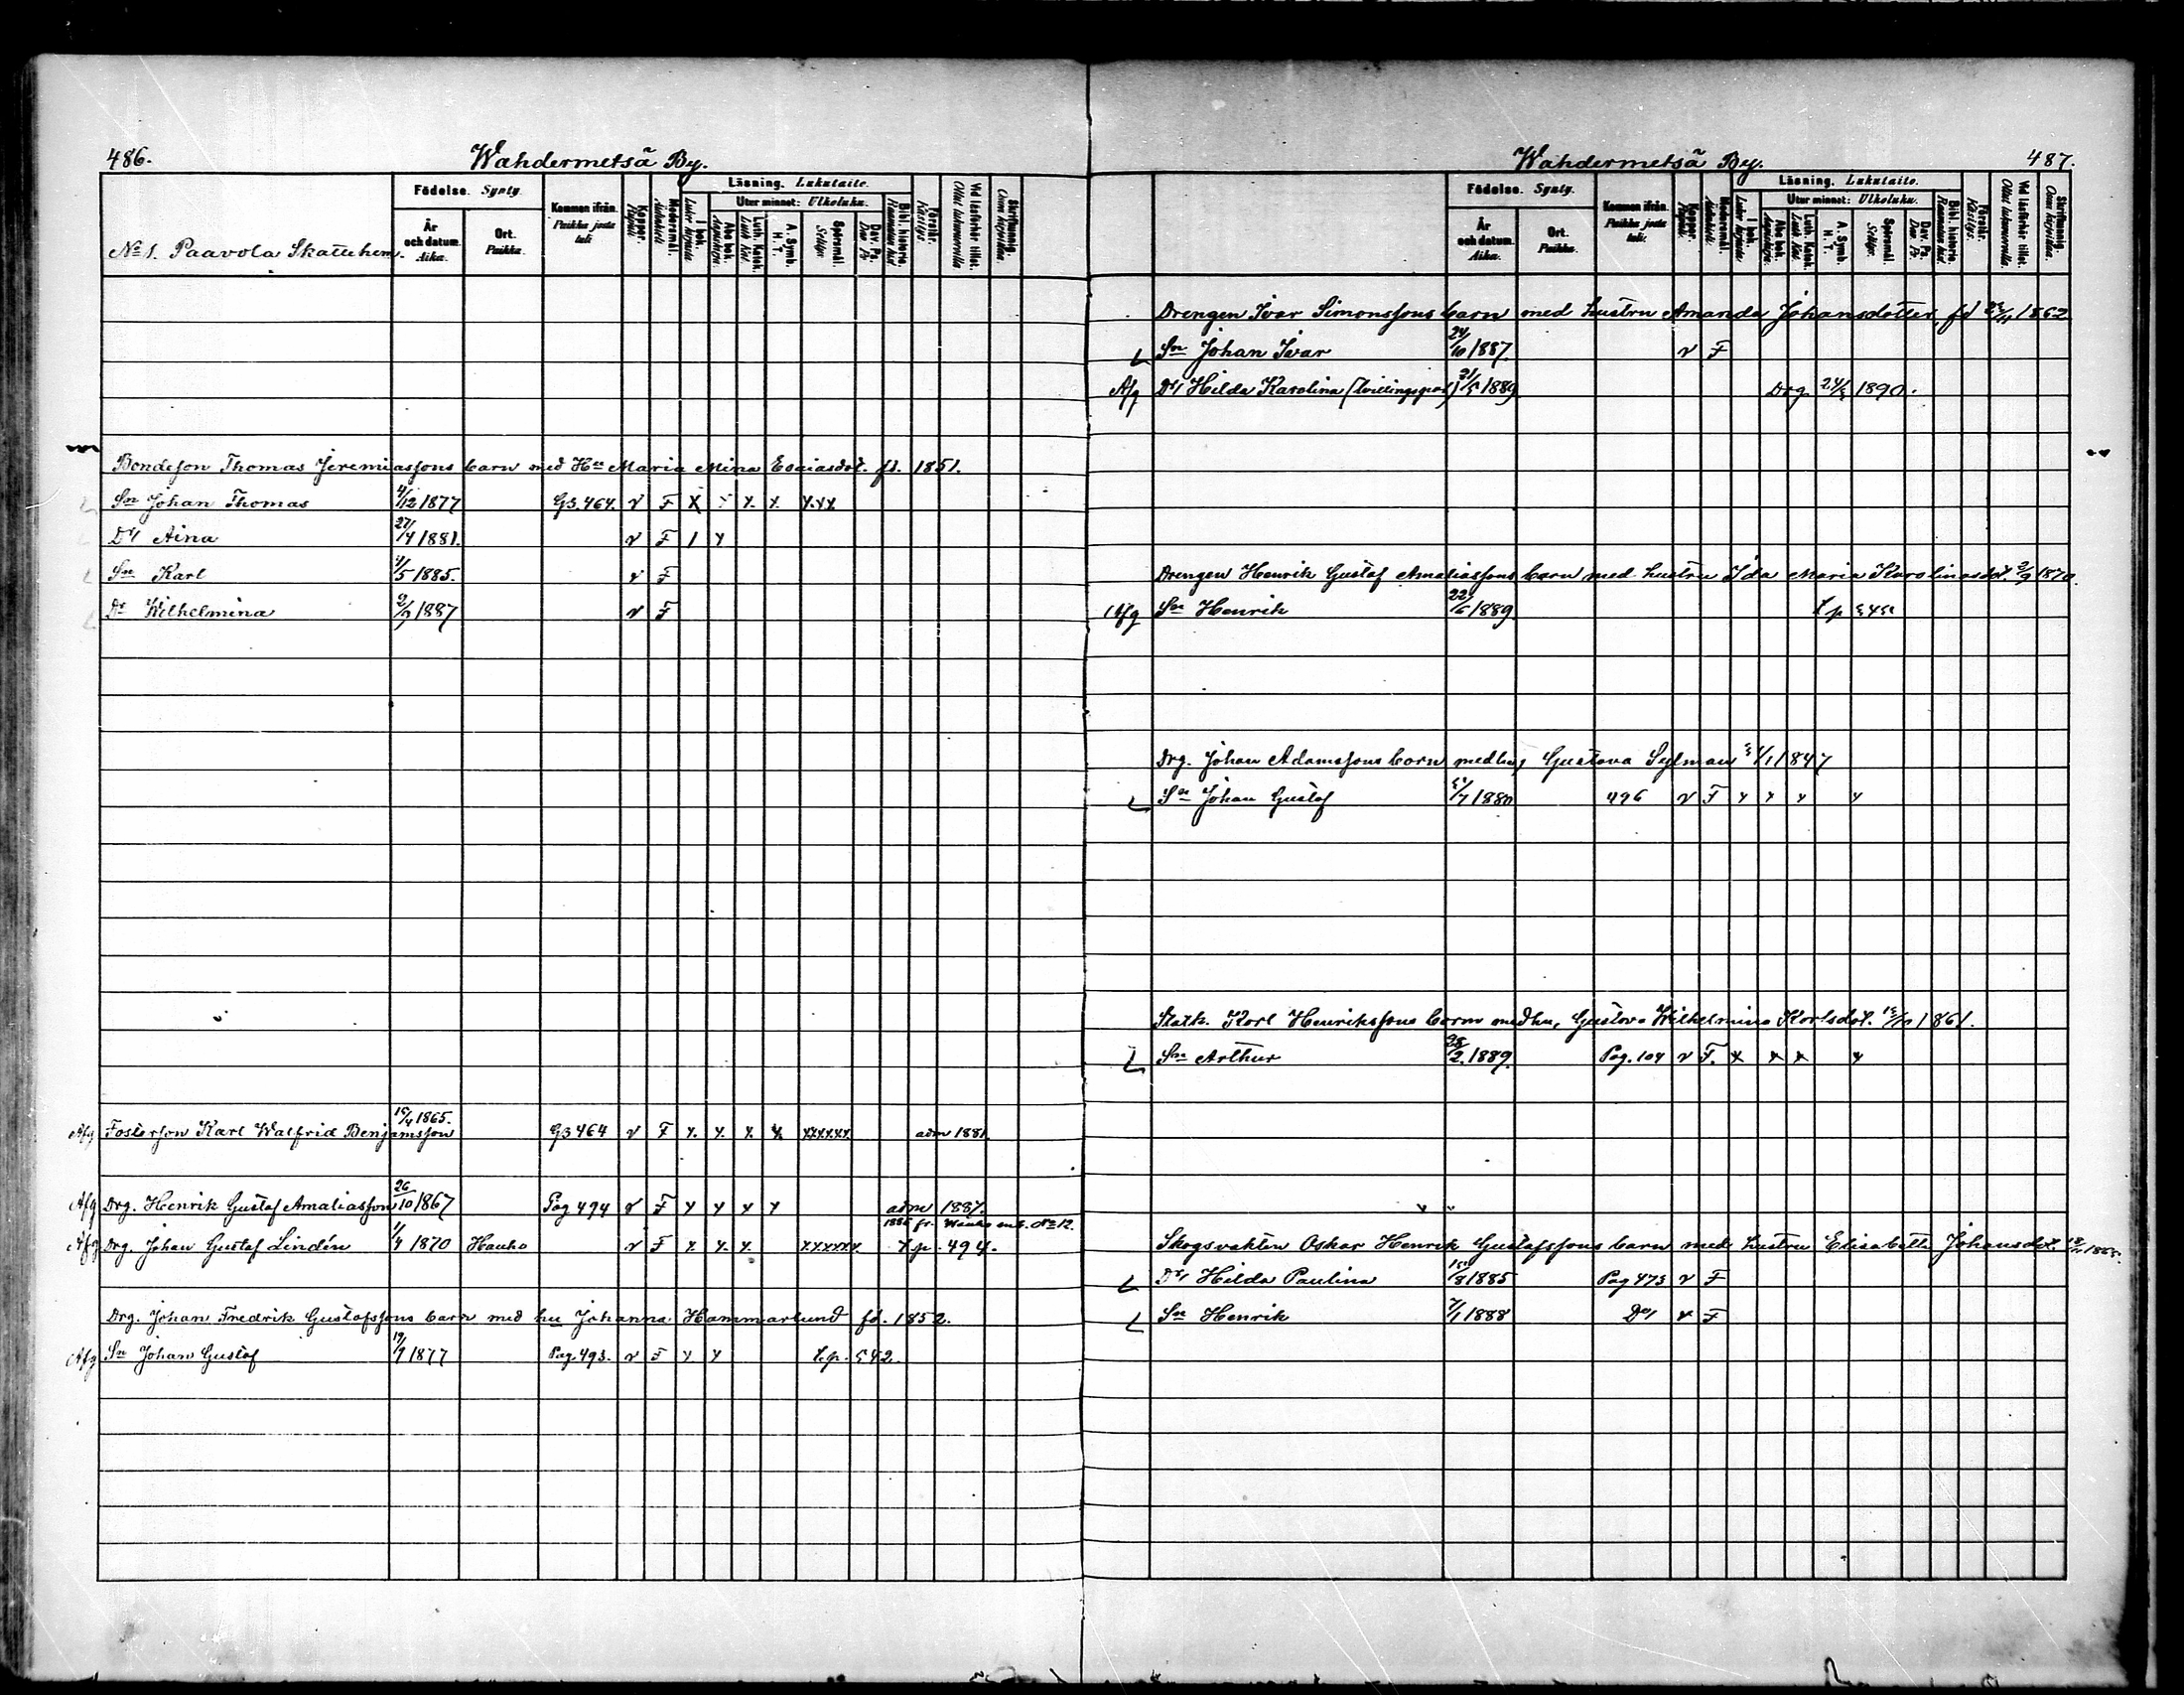 486.
Wahdermetsä By.
Födelse. Synty.
Läsning. Lukutaito.
Utur minnet: Ulkoluku.
År och datum. Aika.
Ort. Paikka.
Kommen ifrån. Paikka josta tuli
Koppor. Rupuli.
Modersmål.
I bok.
Abc bok.
Luth. Katek.
A. Symb. H. T.
Spörsmål.
Dav. Ps.
Bibl. historia.
Försvar.
Vid läsförhör tillst.
Skriftkunnig.
No 1. Paavola Skattehem.
Bondeson Thomas Jeremiassons barn med Hu Maria Mina Esaiasdot. fd. 1851.
Sn Johan Thomas 4/12 1877 GB. 464. v F x x x x x.xx
Dr Aina 27/4 1881. v F 1 x
Sn Karl 4/5 1885. v F
Dr Wilhelmina 2/9 1887 v F
Afg Fosterson Karl Walfrid Benjamsson 15/4 1865. GB 464 v F x. x. x. x. xxxxxx adm 1881.
Afg Drg. Henrik Gustaf Amaliasson 26/10 1867 Pag 494 v F x x x x adm 1887.
Afg Drg. Johan Gustaf Lindén 1/4 1870 Hauho v F x. x. x. xxxxxx Xp. 494.
1886 fr. Hauho No 12.
Drg. Johan Fredrik Gustafssons barn med hu Johanna Hammarlund fd. 1852.
Afg Sn Johan Gustaf 19/9 1877 Pag. 493. v F x x t.p. 542.
487.
Wahdermetsä By.
Födelse. Synty.
Läsning. Lukutaito.
Utur minnet: Ulkoluku.
År och datum. Aika.
Ort. Paikka.
Kommen ifrån. Paikka josta tuli.
Koppor.
Modersmål.
I bok.
Abc bok.
Luth. Katek.
A. Symb. H. T.
Spörsmål.
Dav. Ps.
Bibl. historia.
Försvar.
Vid läsförhör tillst.
Skriftkunnig.
Drengen Ivar Simonssons barn med hustru Amanda Johansdotter, fd 1862
Sn Johan Ivar 24/10 1887. v F
Afg Dr Hilda Karolina (tvillingspar) 31/5 1889 Drg 1890.
Drengen Henrik Gustaf Amaliassons barn med hustru Ida Maria Karolinasdot. 2/9 1870.
Afg Sn Henrik 22/6 1889.
Drg. Johan Adamssons barn med hu, Gustava Sylman 1847
Sn Johan Gustaf 1880 496 v F x x x x
Statk. Karl Henrikssons barn med hu, Gustava Wilhelmina Karlsdot. 1861.
Sn Arthur 28/2. 1889. Pag. 104 v F. x x x x
Skogsvakten Oskar Henrik Gustafssons barn med hustru Elisabeth Johansdot.
Dr Hilda Paulina 15/8 1885 Pag 473 v F
Sn Henrik 7/1 1888 Do v F